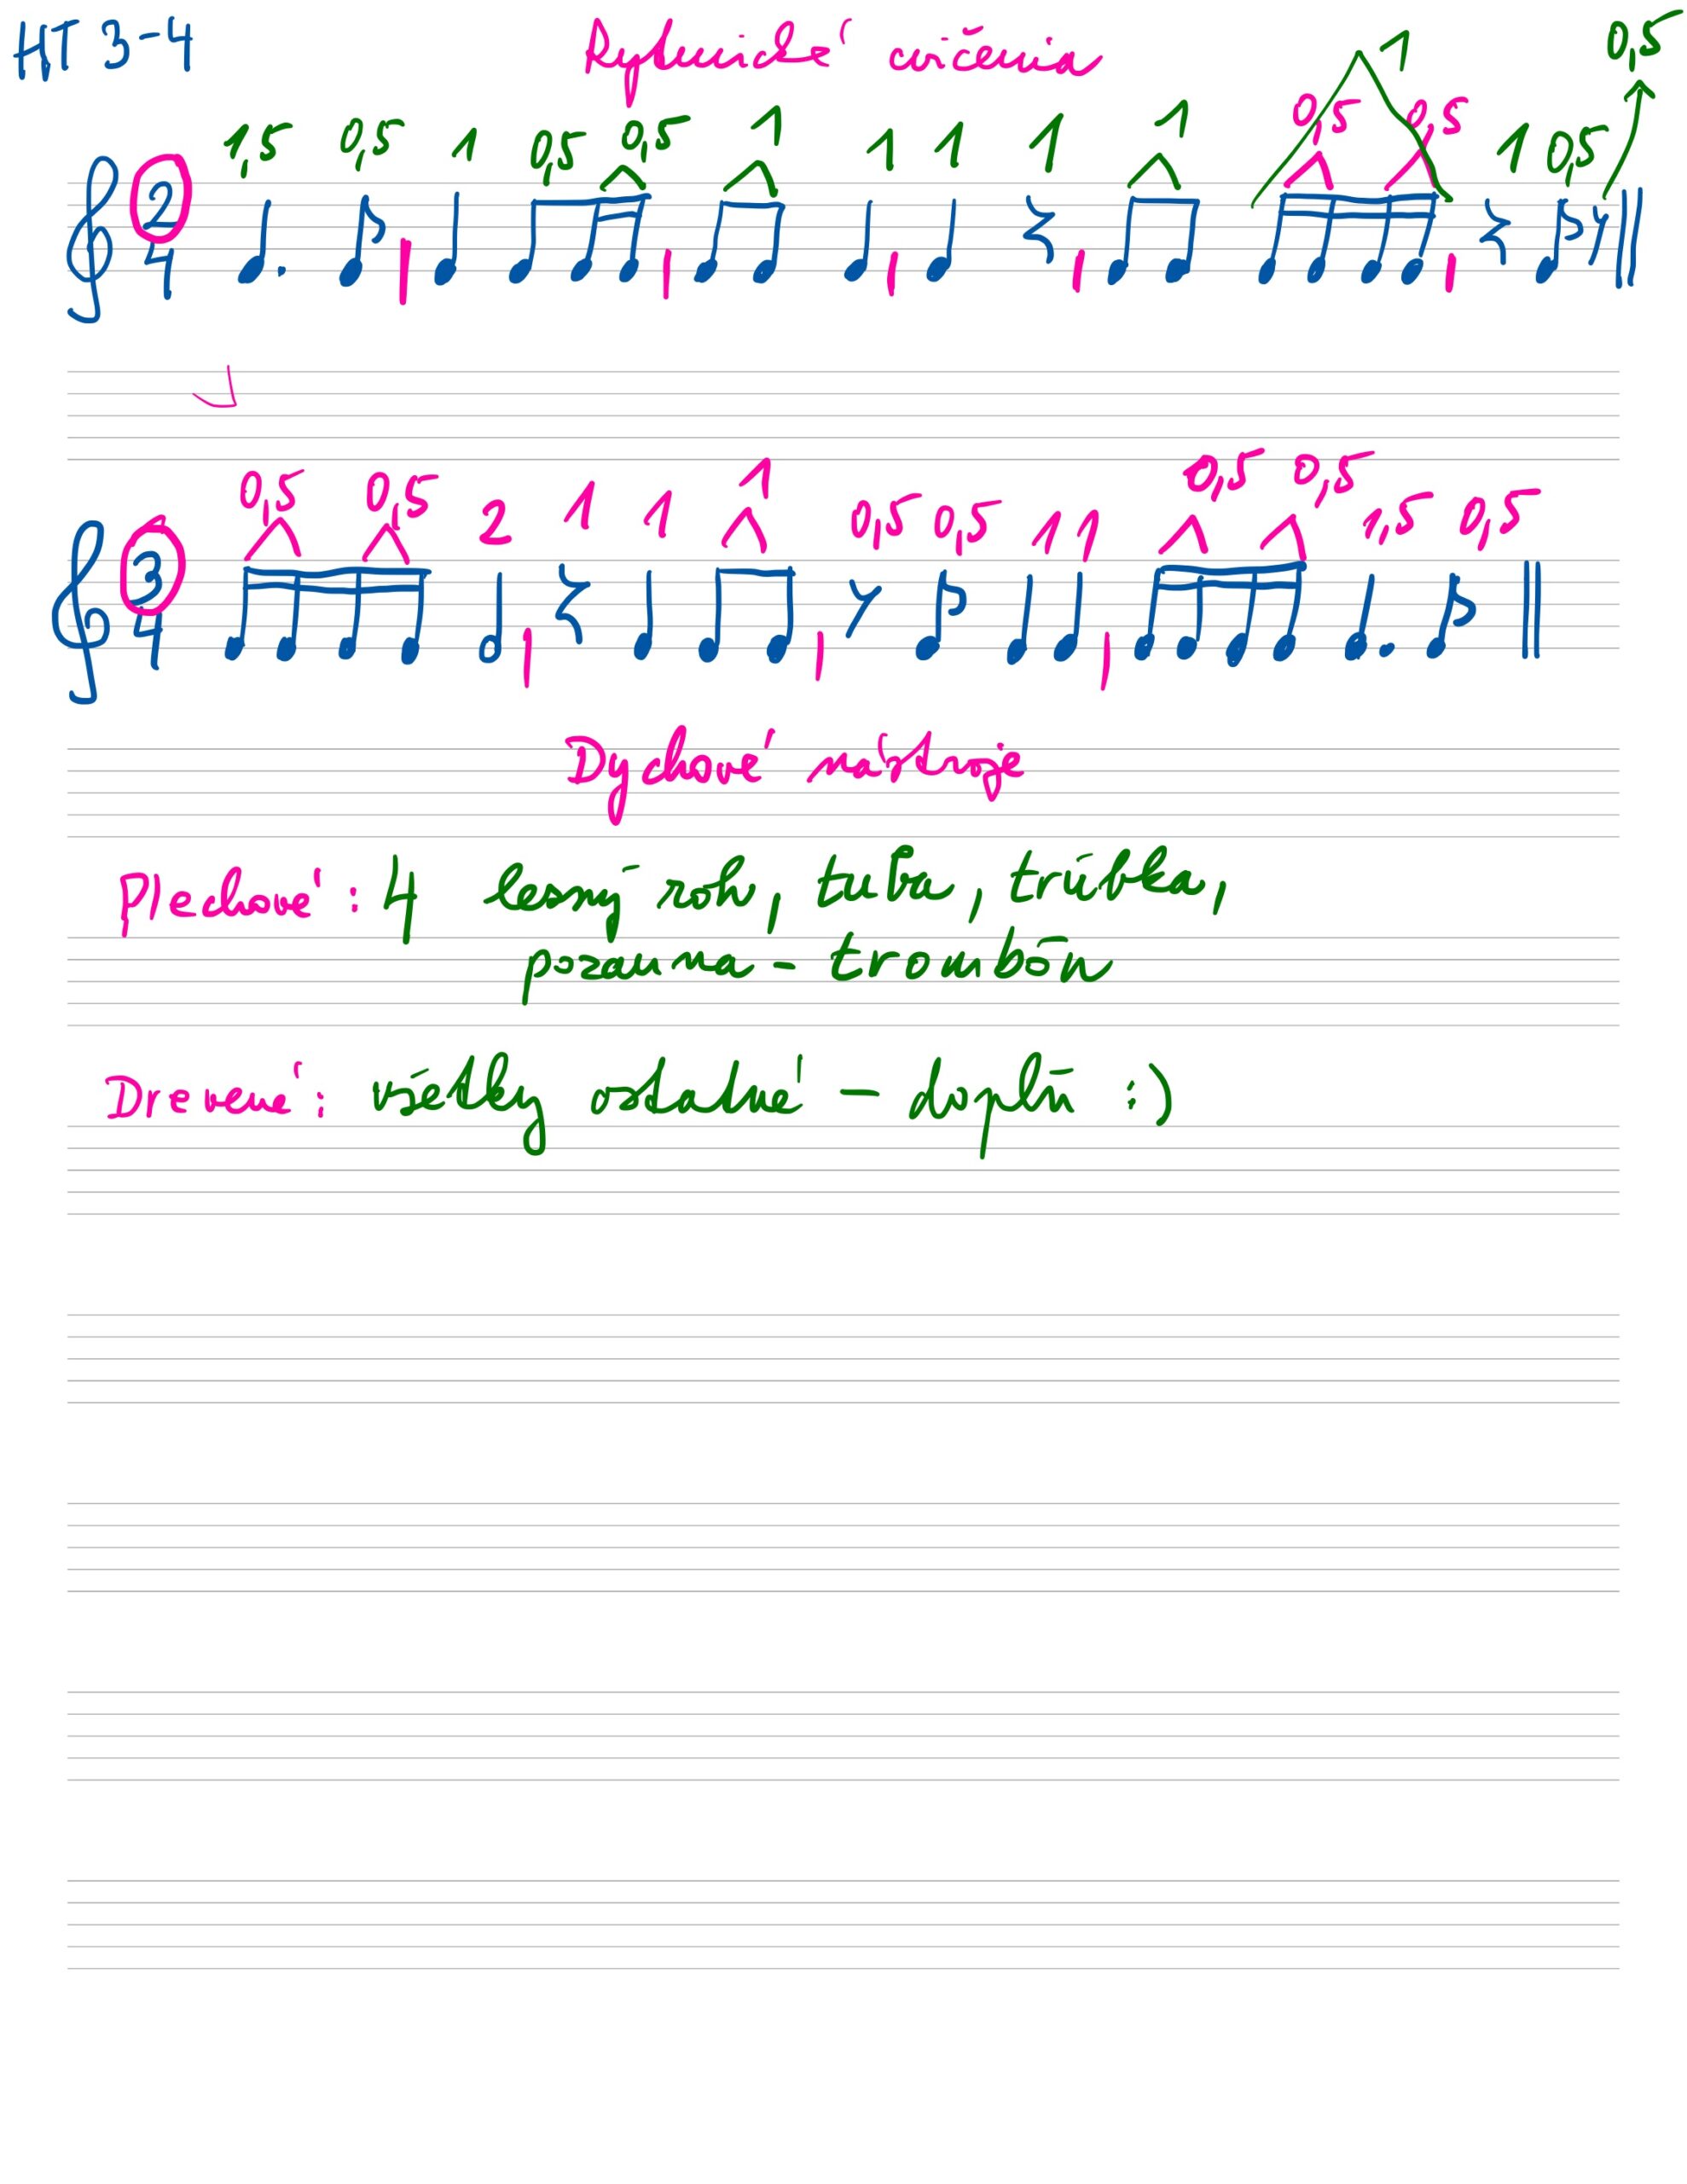 HT 3-4 Rytmické cvičenia
1 0,5
0,5 0,5
1,5 0,5 1 0,5 0,5 1 1 1 1 1 1 0,5
2
4
0,5 0,5 2 1 1 1 0,5 0,5 1 1 0,5 0,5 1,5 0,5
3
4
Dychové nástroje
Plechové: 4 lesný roh, tuba, trúbka,
pozauna - trombón
Drevené: všetky ostatné - doplň :)